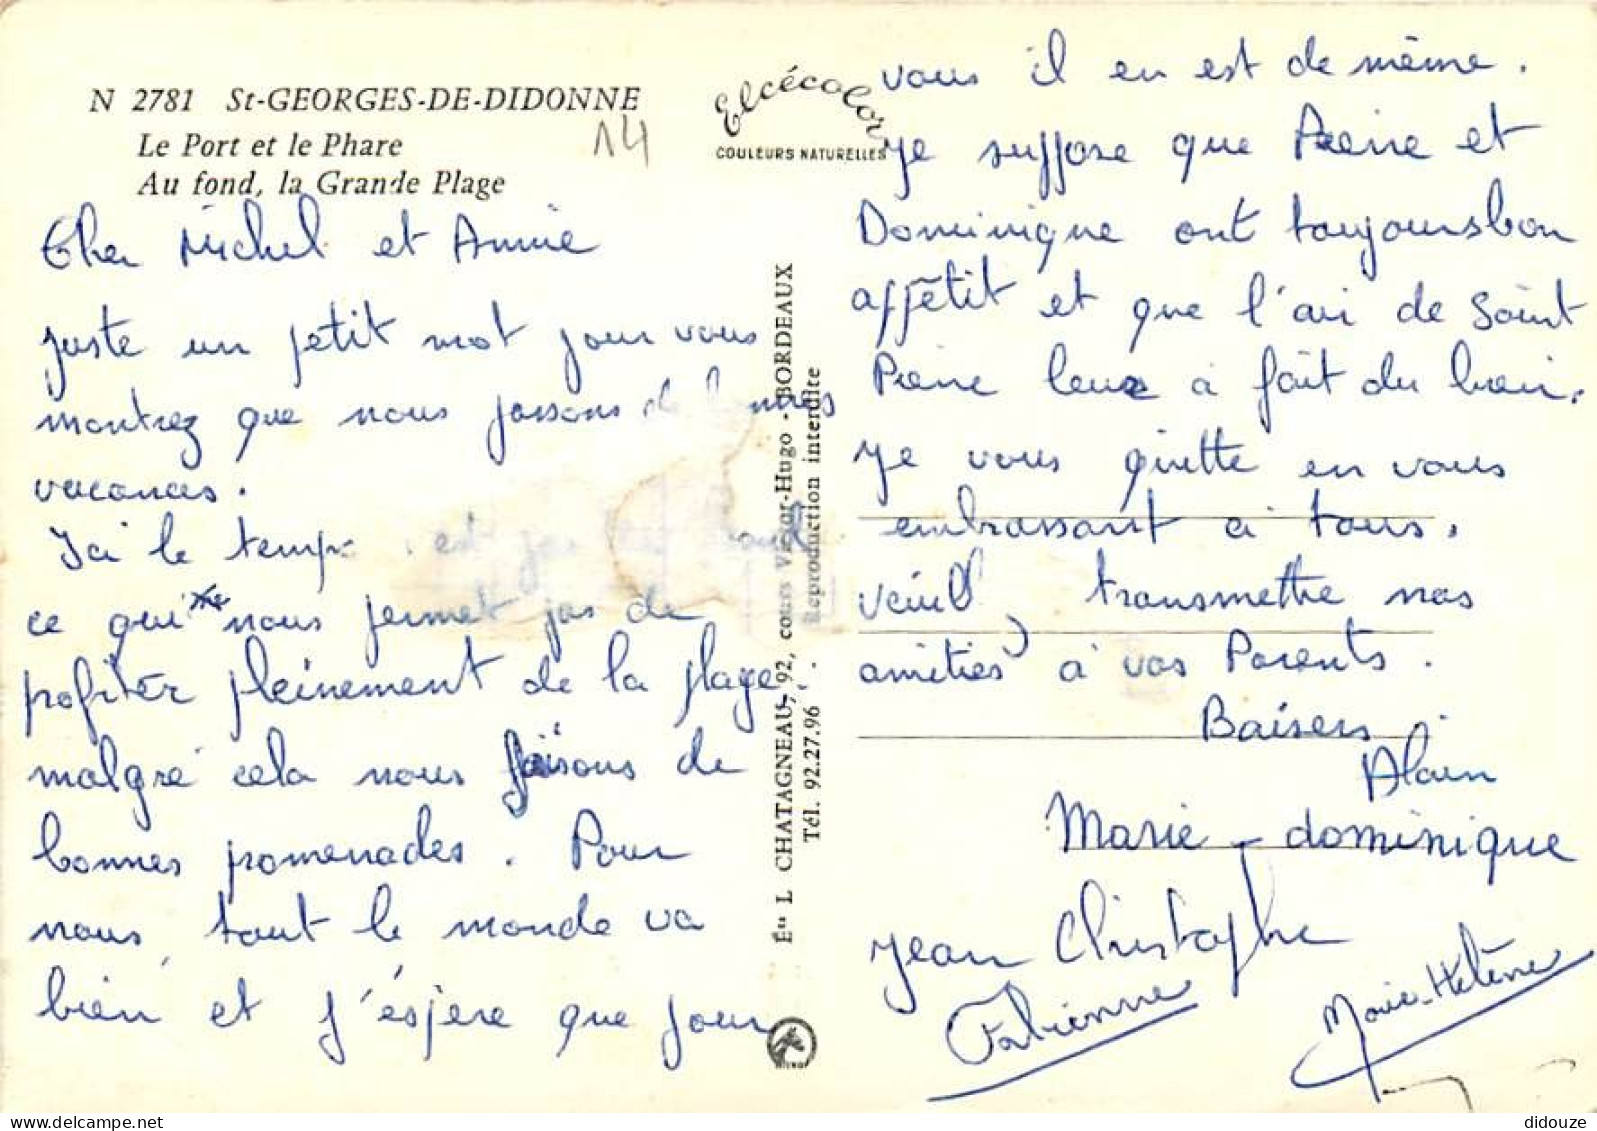 N 2781 St-GEORGES-DE-DIDONNE
Le Port et le Phare
Au fond, la Grande Plage
14
Elcécolor
COULEURS NATURELLES
Cher Michel et Annie
juste un petit mot pour vous
montrez que nous passons de bonnes
vacances.
Ici le temps est pas
ce qui nous permet pas de
profiter pleinement de la plage.
malgré cela nous faisons de
bonnes promenades. Pour
nous, tout le monde va
bien et j'espère que pour
Éts L CHATAGNEAU, 92, cours Victor-Hugo - BORDEAUX
Tél. 92.27.96 - Reproduction interdite
vous il en est de même.
Je suppose que Pierre et
Dominique ont toujours bon
appêtit et que l'air de Saint
Pierre leur a fait du bien.
Je vous quitte en vous
embrassant à tous.
transmettre nos
amitiés à vos Parents.
Baisers
Alain
Marie-dominique
Jean Christophe
Fabienne
Marie-Hélène
didouze